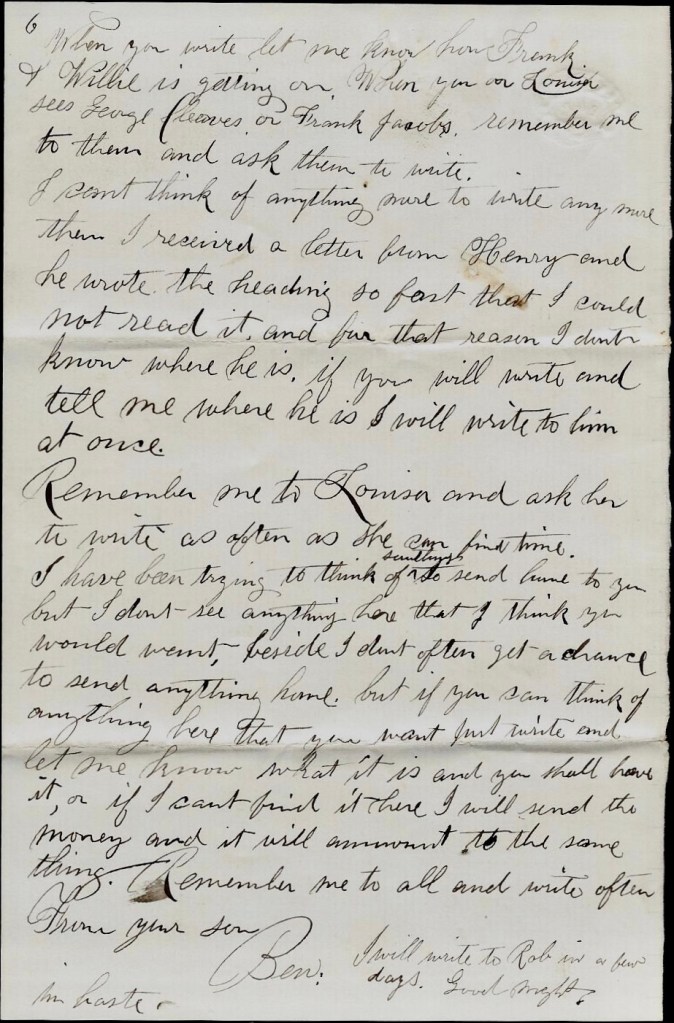 6
When you write let me know how Frank
& Willie is getting on. When you or Louisa
sees George Cleaves or Frank Jacobs. remember me
to them and ask them to write.
I cant think of anything more to write any more
then I received a letter from Henry and
he wrote the heading so fast that I could
not read it. and for that reason I dont
know where he is. if you will write and
tell me where he is I will write to him
at once.
Remember me to Louisa and ask her
to write as often as she can find time.
I have been trying to think of something to send home to you
but I dont see anything here that I think you
would want, beside I dont often get a chance
to send anything home. but if you can think of
anything here that you want just write and
let me know what it is and you shall have
it, or if I cant find it here I will send the
money and it will ammount to the same
thing. Remember me to all and write often
From your son
Ben.
I will write to Rob in a few
days. Good night.
in haste